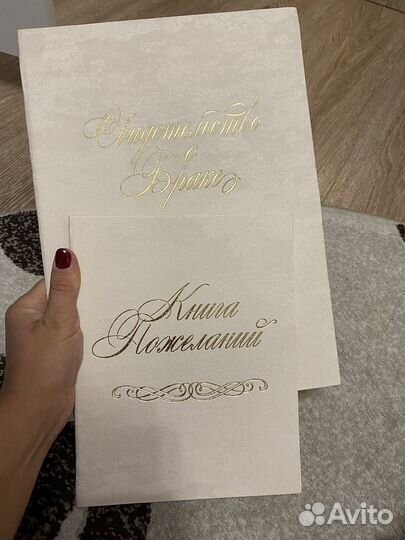 Свидетельство
о
Браке
Книга
Пожеланий
Avito